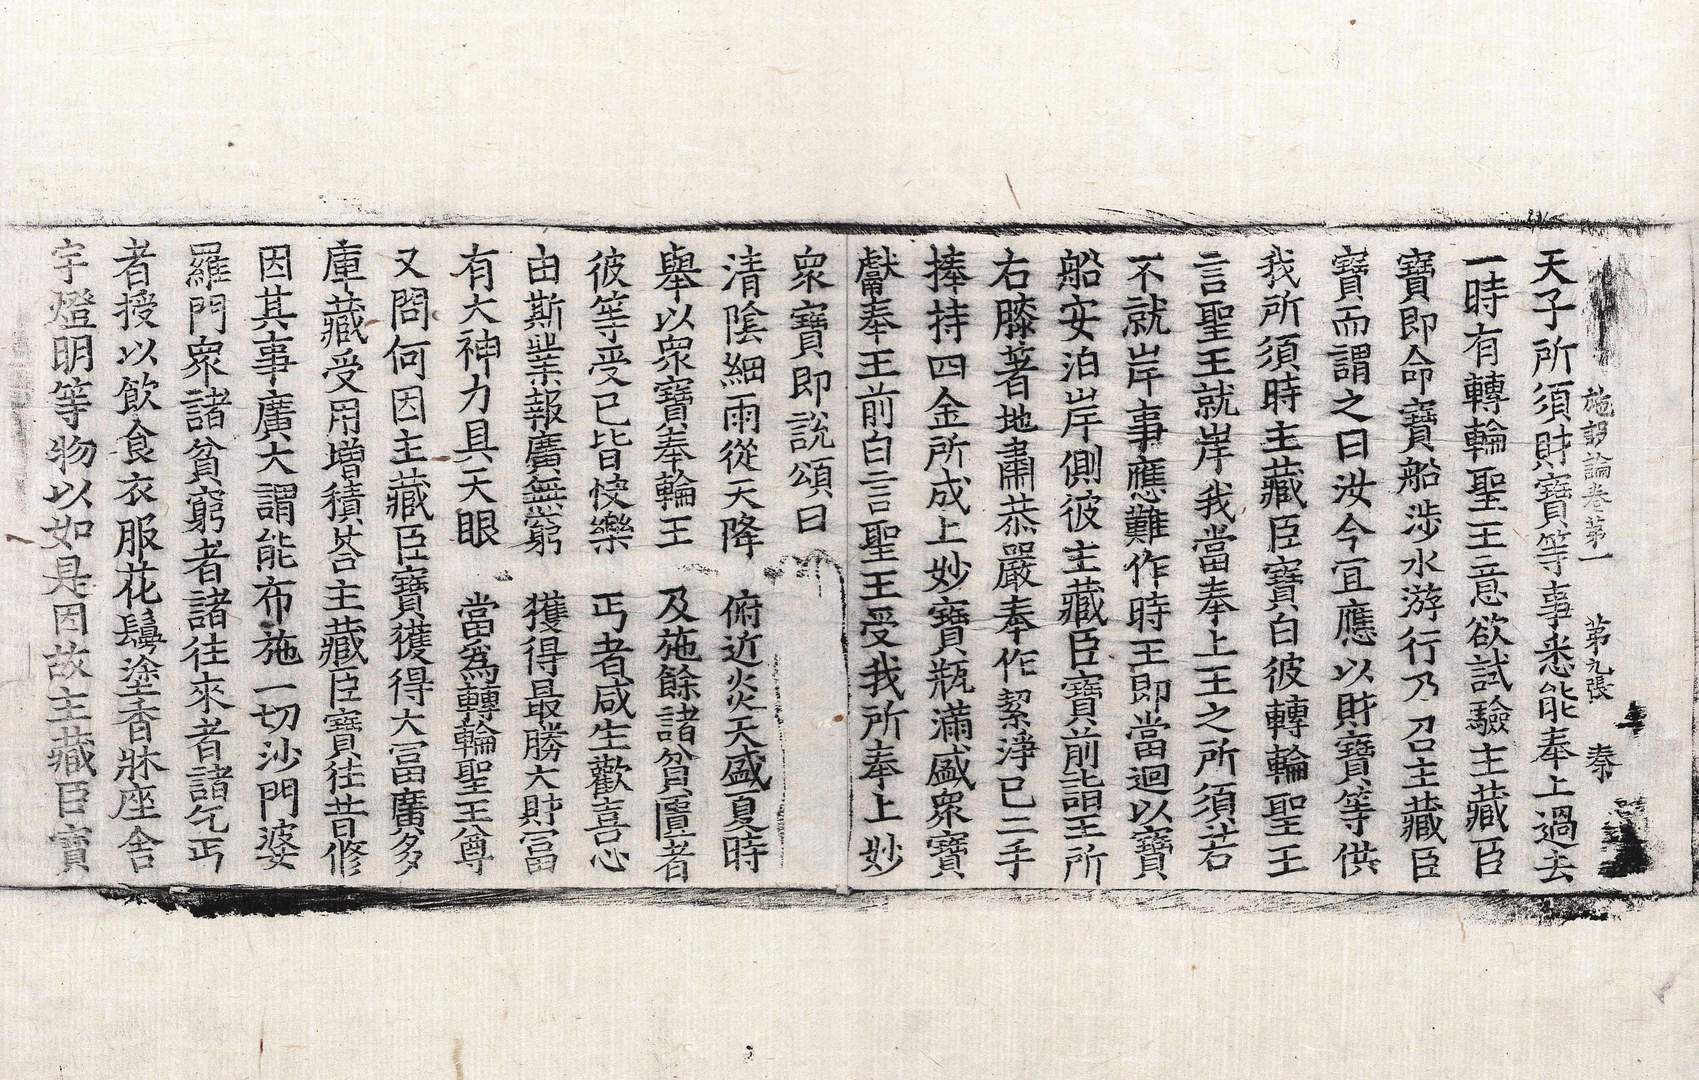 施設論卷第一 第九張 秦
天子所須財寶等事悉能奉上過去
一時有轉輪聖王意欲試驗主藏臣
寶即命寶船涉水游行乃召主藏臣
寶而謂之曰汝今宜應以財寶等供
我所須時主藏臣寶白彼轉輪聖王
言聖王就岸我當奉上王之所須若
不就岸事應難作時王即當迴以寶
船安泊岸側彼主藏臣寶前詣王所
右膝著地肅恭嚴奉作絜淨已二手
捧持四金所成上妙寶瓶滿盛衆寶
獻奉王前白言聖王受我所奉上妙
衆寶即說頌曰
清陰細雨從天降 俯近炎天盛夏時
舉以衆寶奉輪王 及施餘諸貧匱者
彼等受已皆快樂 丐者咸生歡喜心
由斯業報廣無窮 獲得最勝大財富
有大神力具天眼 當爲轉輪聖王尊
又問何因主藏臣寶獲得大富廣多
庫藏受用增積荅主藏臣寶往昔修
因其事廣大謂能布施一切沙門婆
羅門衆諸貧窮者諸往來者諸乞丐
者授以飲食衣服花鬘塗香牀座舍
宇燈明等物以如是因故主藏臣寶